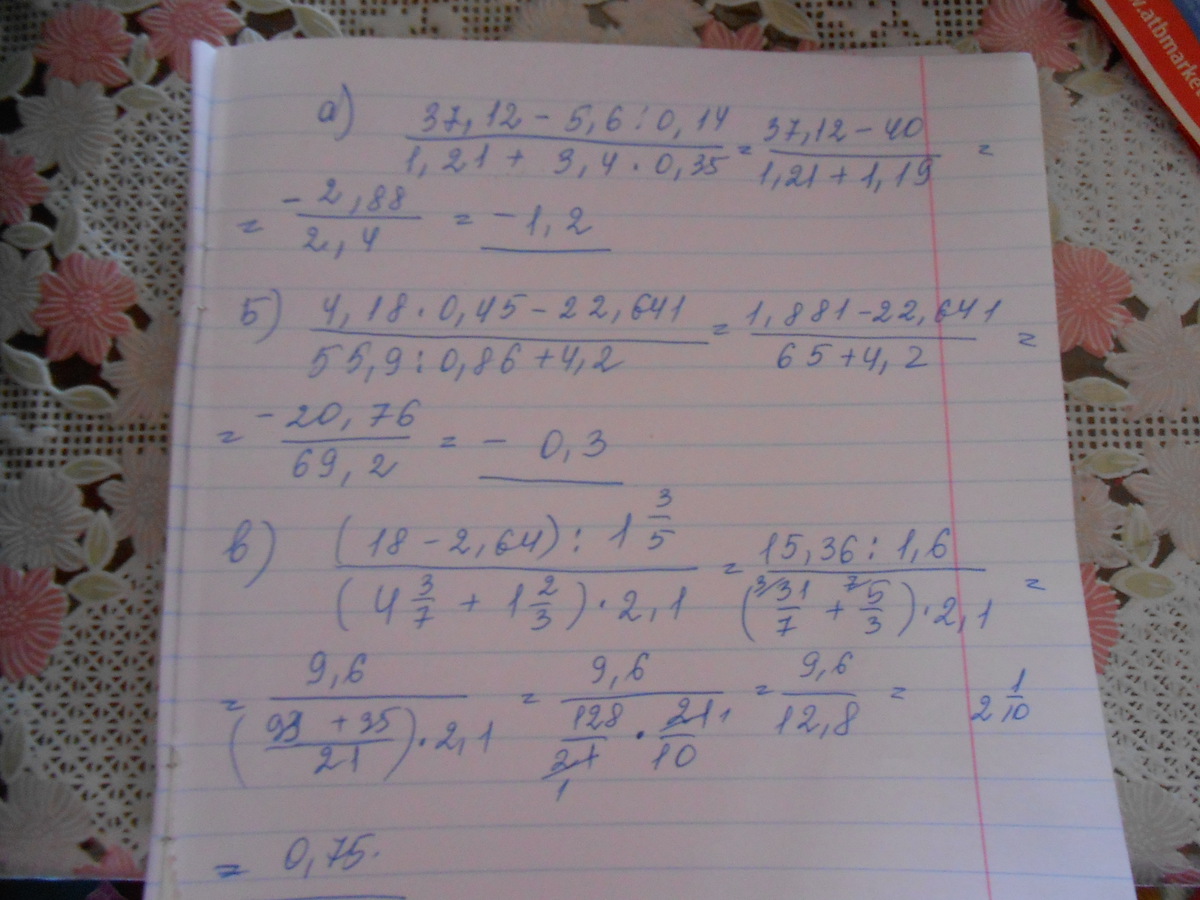 www.atbmarke
а) (37,12 - 5,6 : 0,14)/(1,21 + 3,4 · 0,35) = (37,12 - 40)/(1,21 + 1,19) =
= (-2,88)/(2,4) = -1,2
б) (4,18 · 0,45 - 22,641)/(55,9 : 0,86 + 4,2) = (1,881 - 22,641)/(65 + 4,2) =
= (-20,76)/(69,2) = - 0,3
в) ((18 - 2,64) : 1 3/5)/((4 3/7 + 1 2/3) · 2,1) = (15,36 : 1,6)/((³⁄31/7 + ⁷⁄5/3) · 2,1) =
= 9,6/(((93 + 35)/21) · 2,1) = 9,6/(128/21 · 21/10) = 9,6/12,8 = 2 1/10
= 0,75.